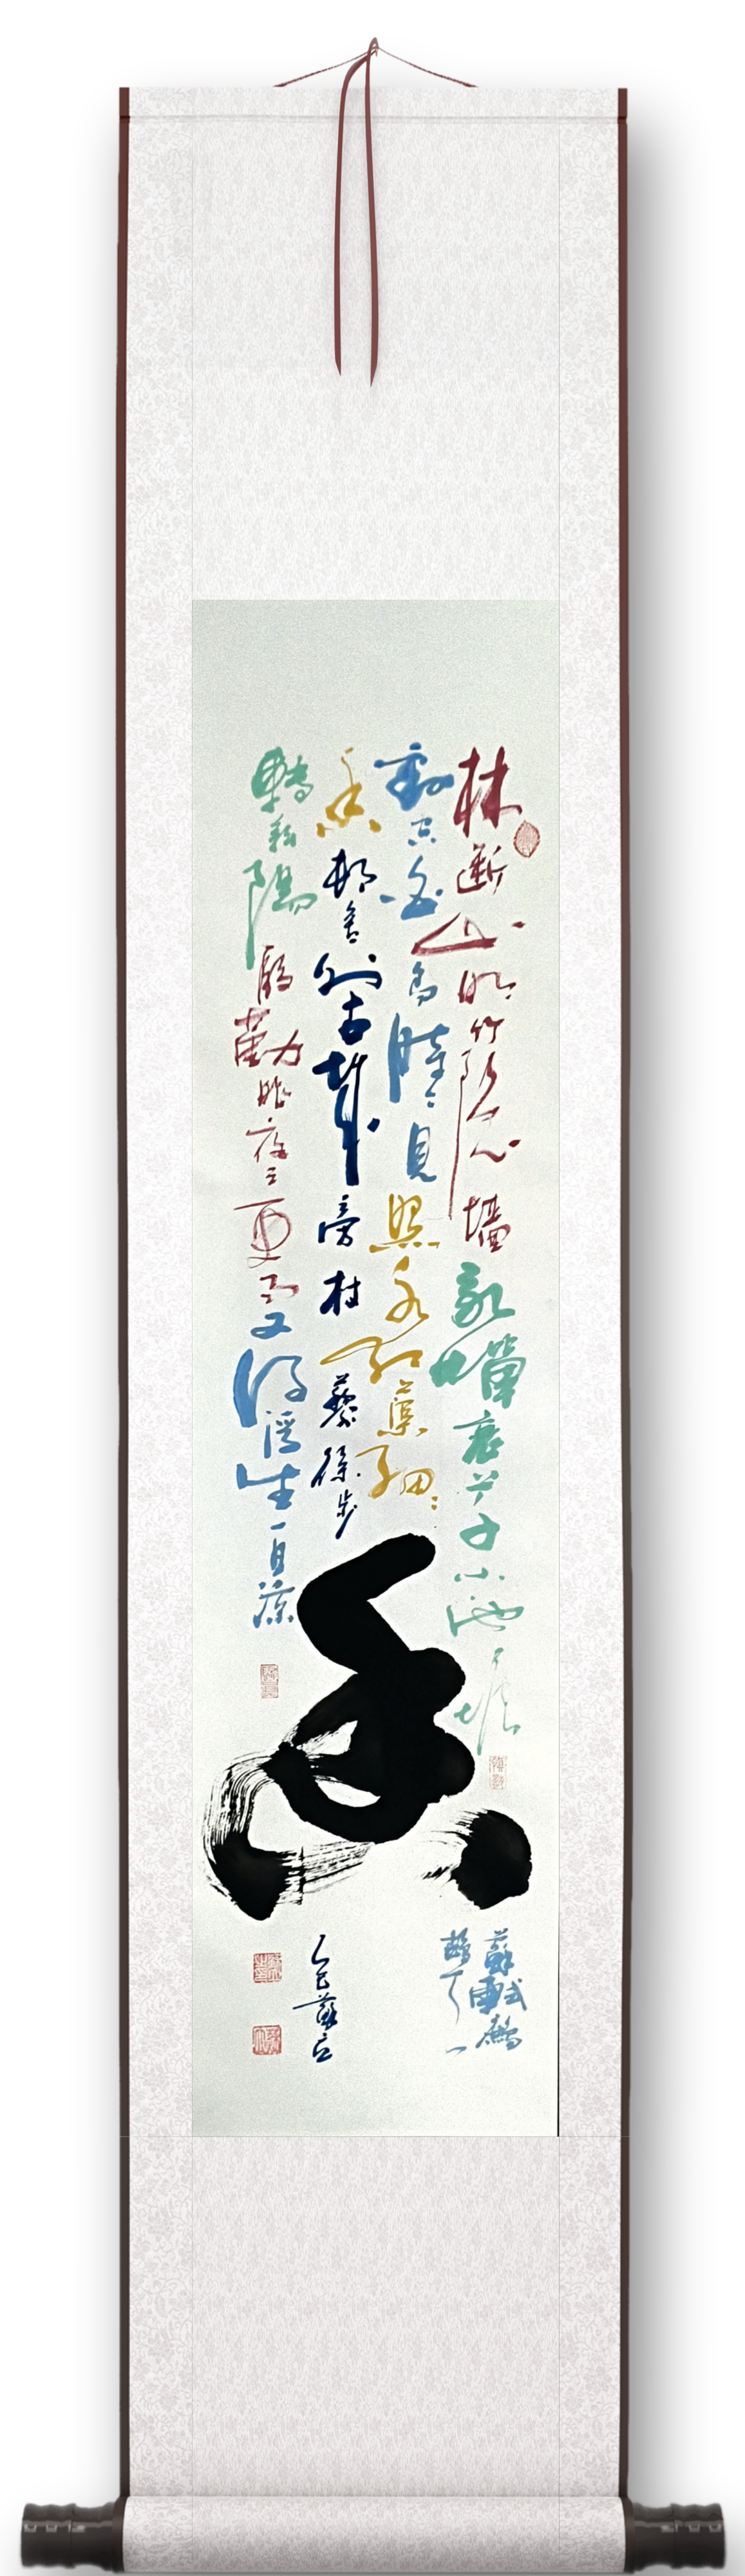 林斷山明竹隱墻亂蟬衰草小池塘
翻空白鳥時時見照水紅蕖細細
香村舍外古城旁杖藜徐步
轉斜陽殷勤昨夜三更雨又得浮生一日涼
香
蘇軾鷓
鴣天一
乙巳